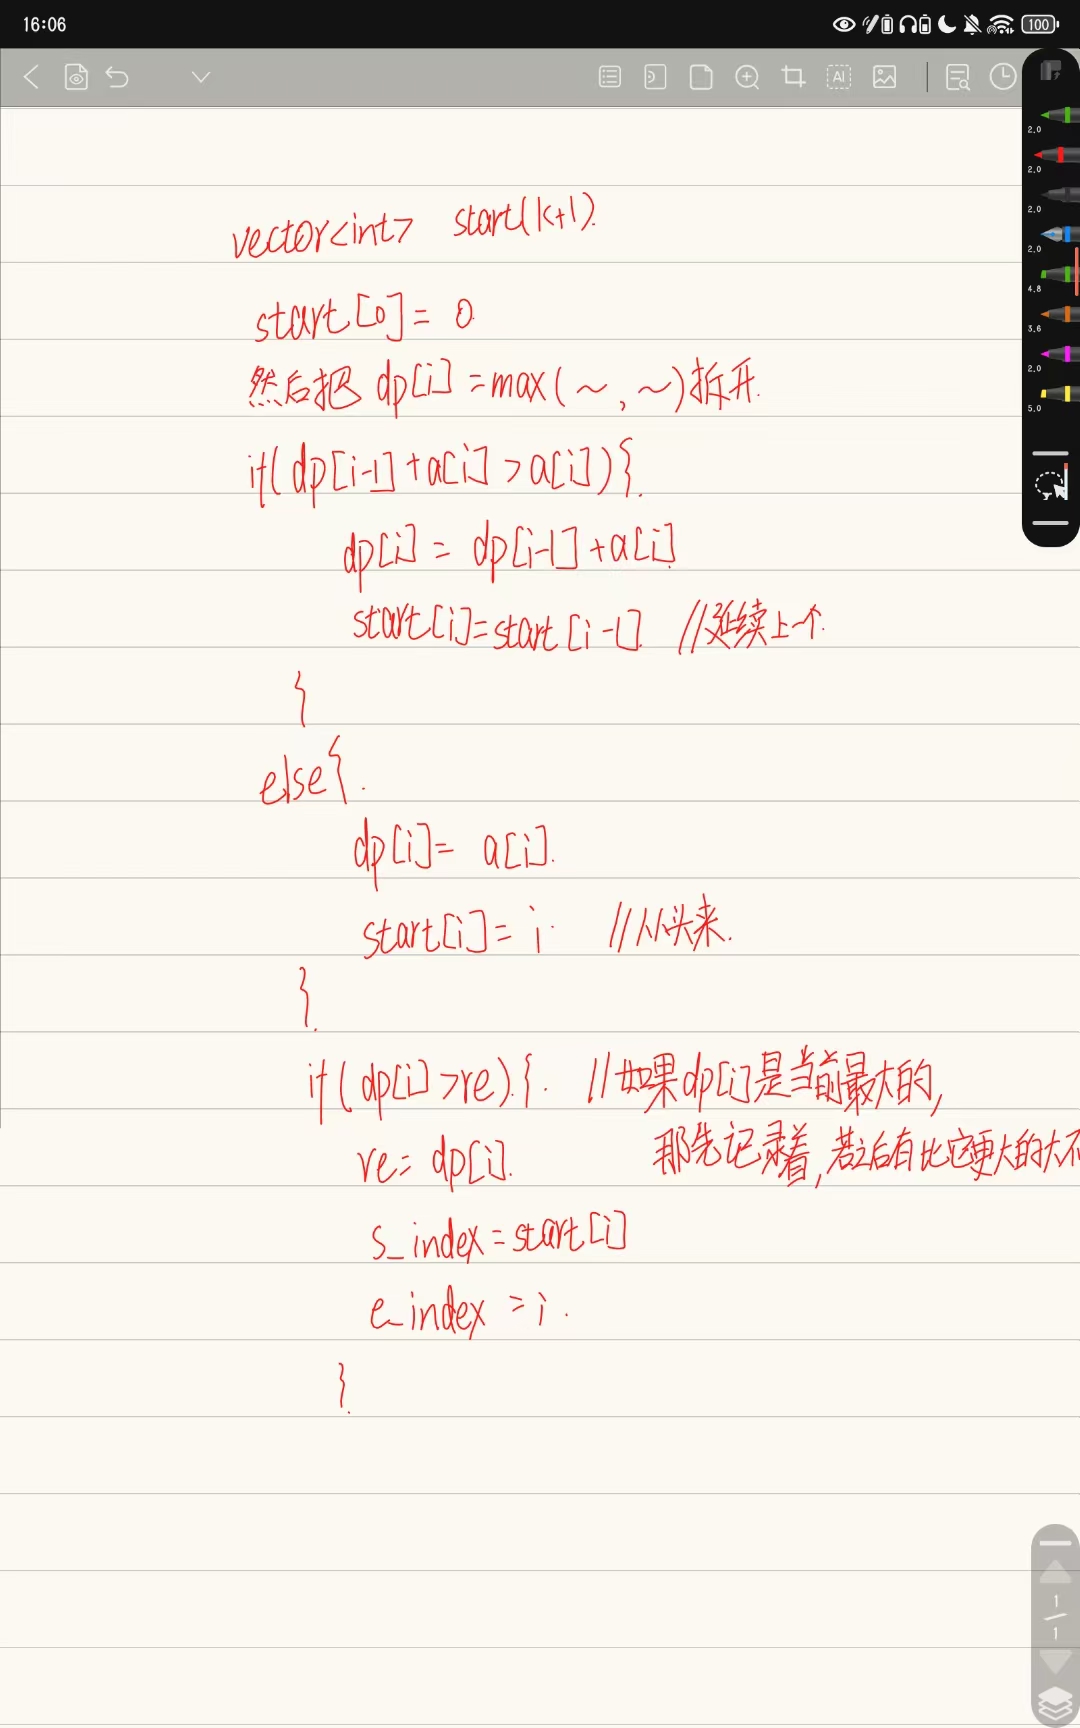 16:06
100
AI
2.0
2.0
2.0
2.0
4.8
3.6
2.0
5.0
vector<int> start(k+1).
start[0] = 0
然后把 dp[i] = max(~,~)拆开.
if(dp[i-1]+a[i]>a[i]){.
dp[i] = dp[i-1]+a[i]
start[i]=start[i-1] //延续上一个.
{
else{.
dp[i]= a[i].
start[i]= i. //从头来.
}.
if(dp[i]>re).{. //如果dp[i]是当前最大的,
re= dp[i]. 那先记录着,若之后有比它更大的大不
s_index=start[i]
e_index =i.
}.
1
1